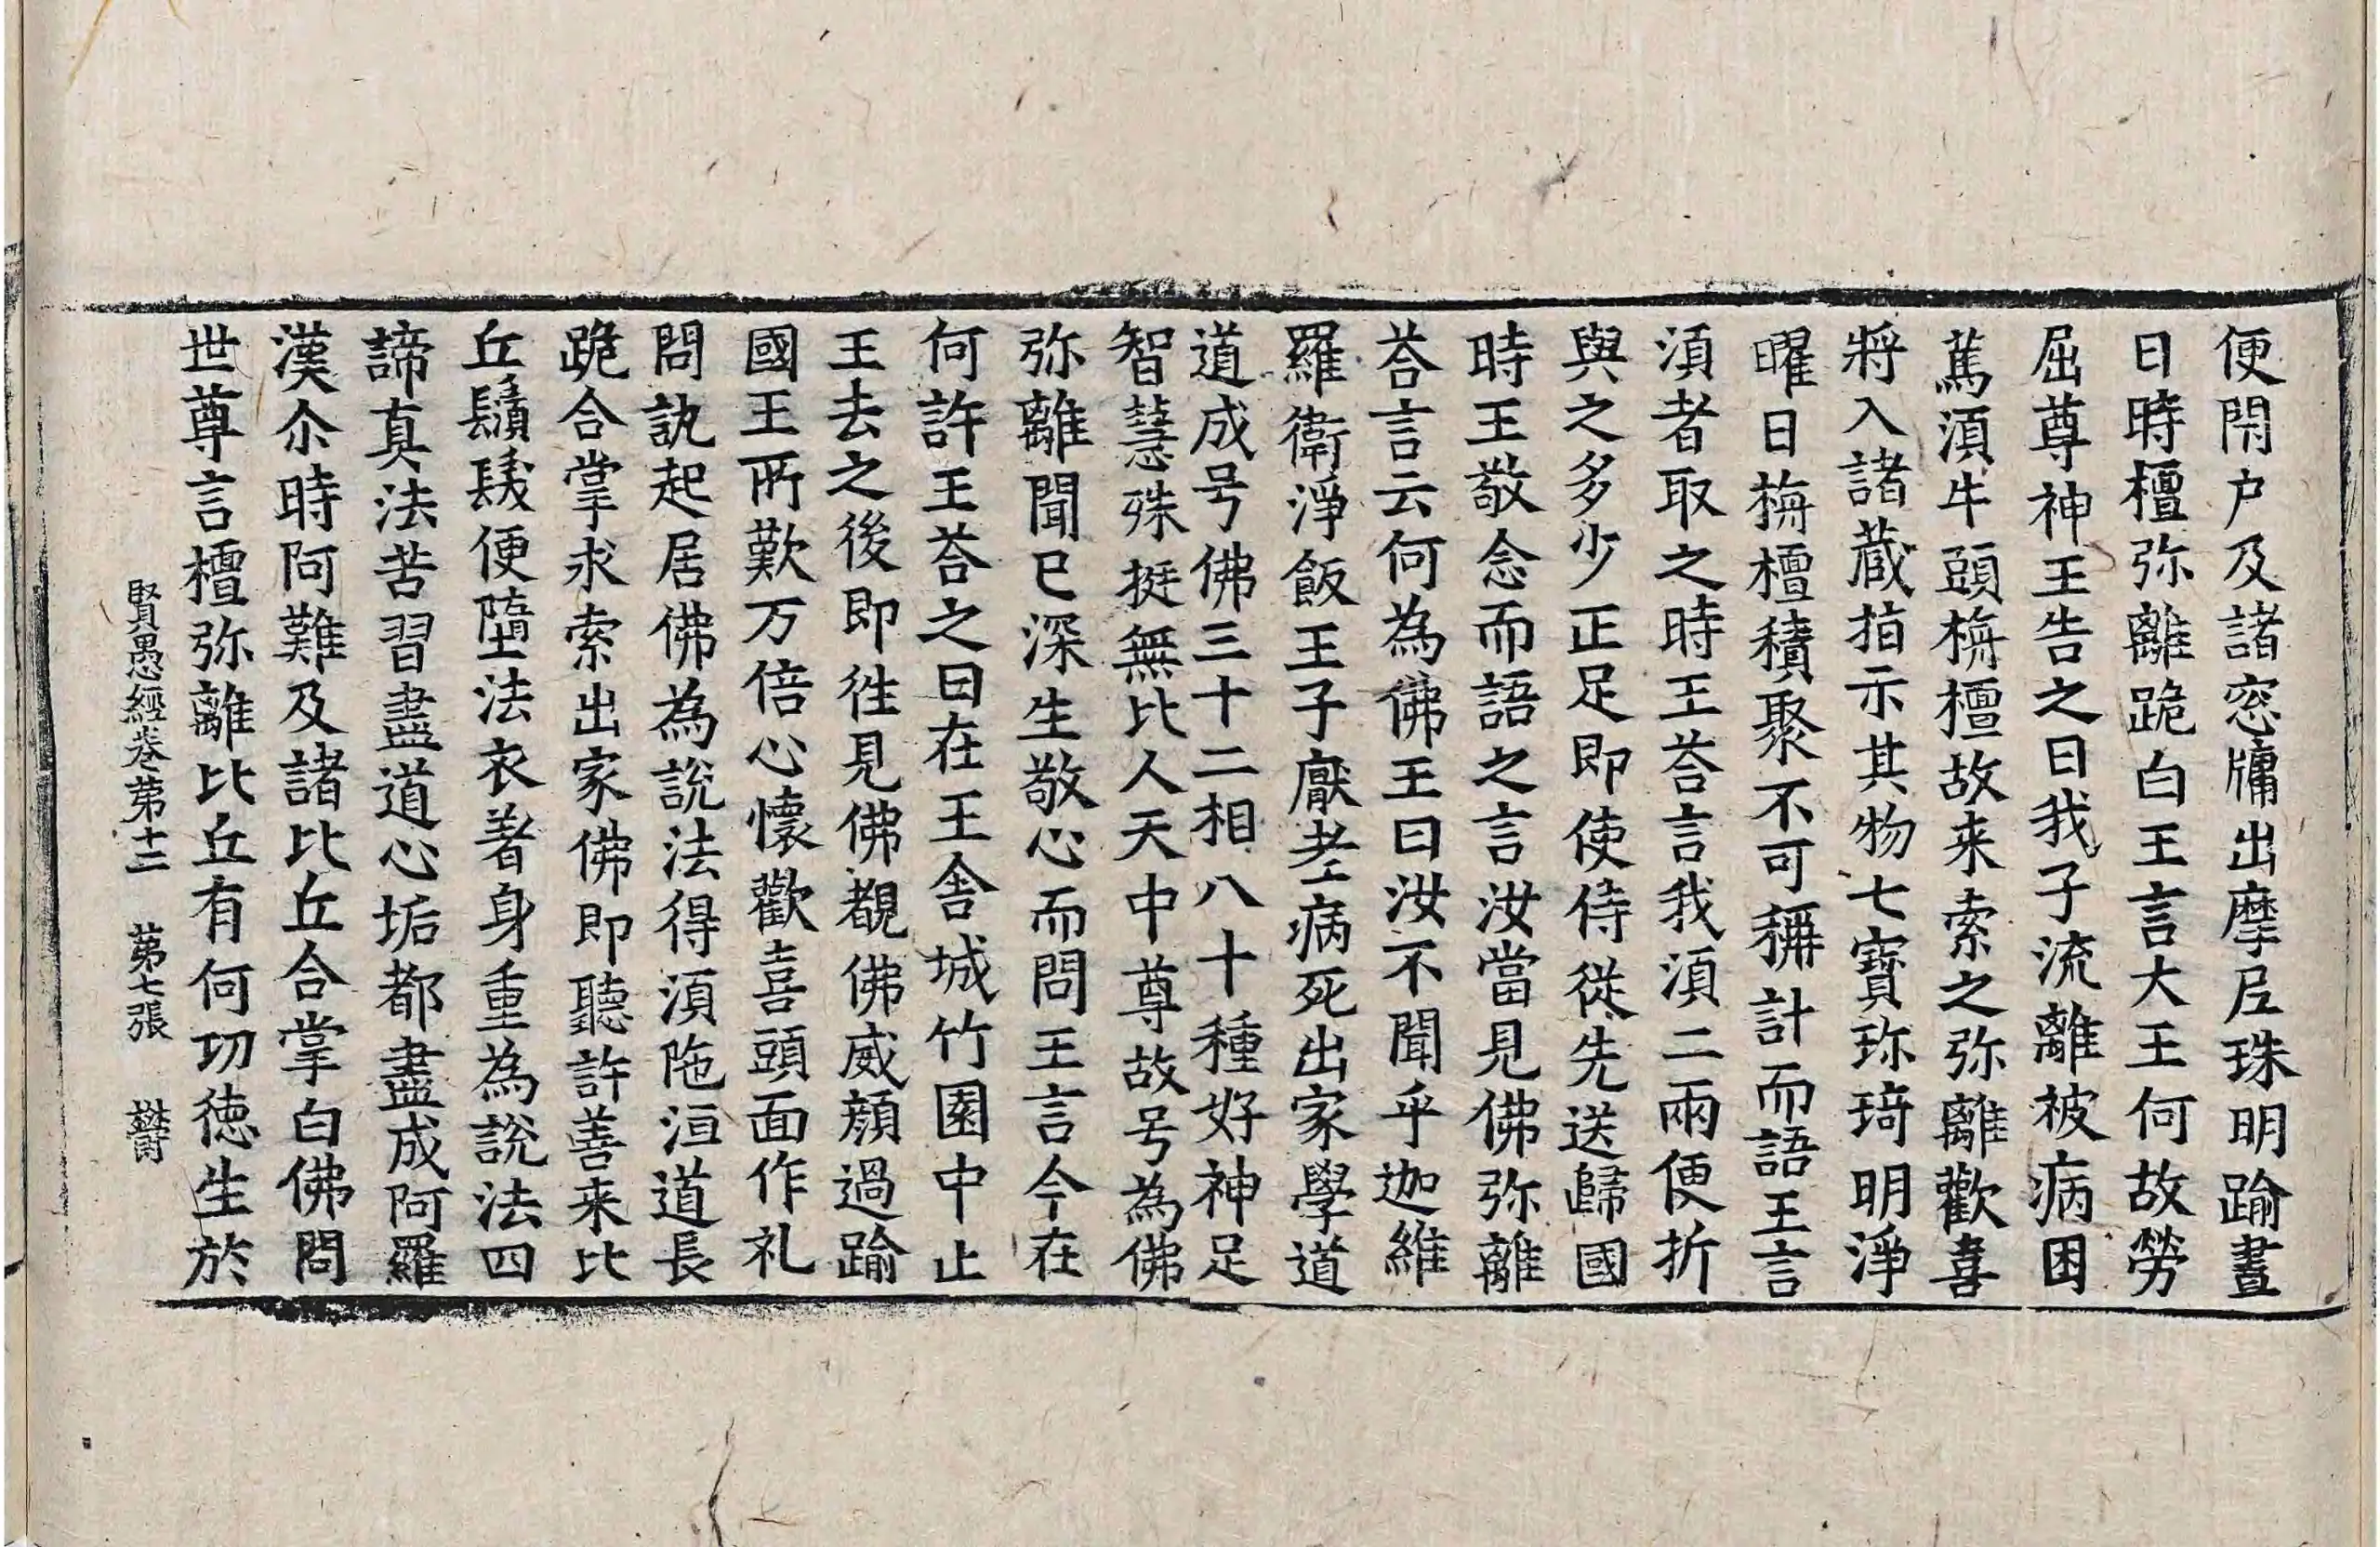 便閇户及諸窓牗出摩𡰱珠明踰晝
日時檀弥離跪白王言大王何故勞
屈尊神王告之曰我子流離被病困
蔫湏牛頭栴檀故来索之弥離歡喜
將入諸蔵指示其物七寶琜琦明淨
曜日栴檀積聚不可稱計而語王言
湏者取之時王荅言我湏二兩便折
與之多少正足即使侍從先送歸國
時王敬念而語之言汝當見佛弥離
荅言云何為佛王曰汝不聞乎迦維
羅衛淨飯王子厭老病死出家學道
道成号佛三十二相八十種好神足
智慧殊挺無比人天中尊故号為佛
弥離聞已深生敬心而問王言今在
何許王荅之曰在王舎城竹園中止
王去之後即徃見佛覩佛威顔過踰
國王所歎万倍心懷歡喜頭面作礼
問訊起居佛為說法得湏陁洹道長
跪合掌求索出家佛即聽許善来比
丘鬚髮便墮法衣著身重為說法四
諦真法苦習盡道心垢都盡成阿羅
漢尒時阿難及諸比丘合掌白佛問
世尊言檀弥離比丘有何切徳生於
賢愚經卷苐十二 苐七張 欝